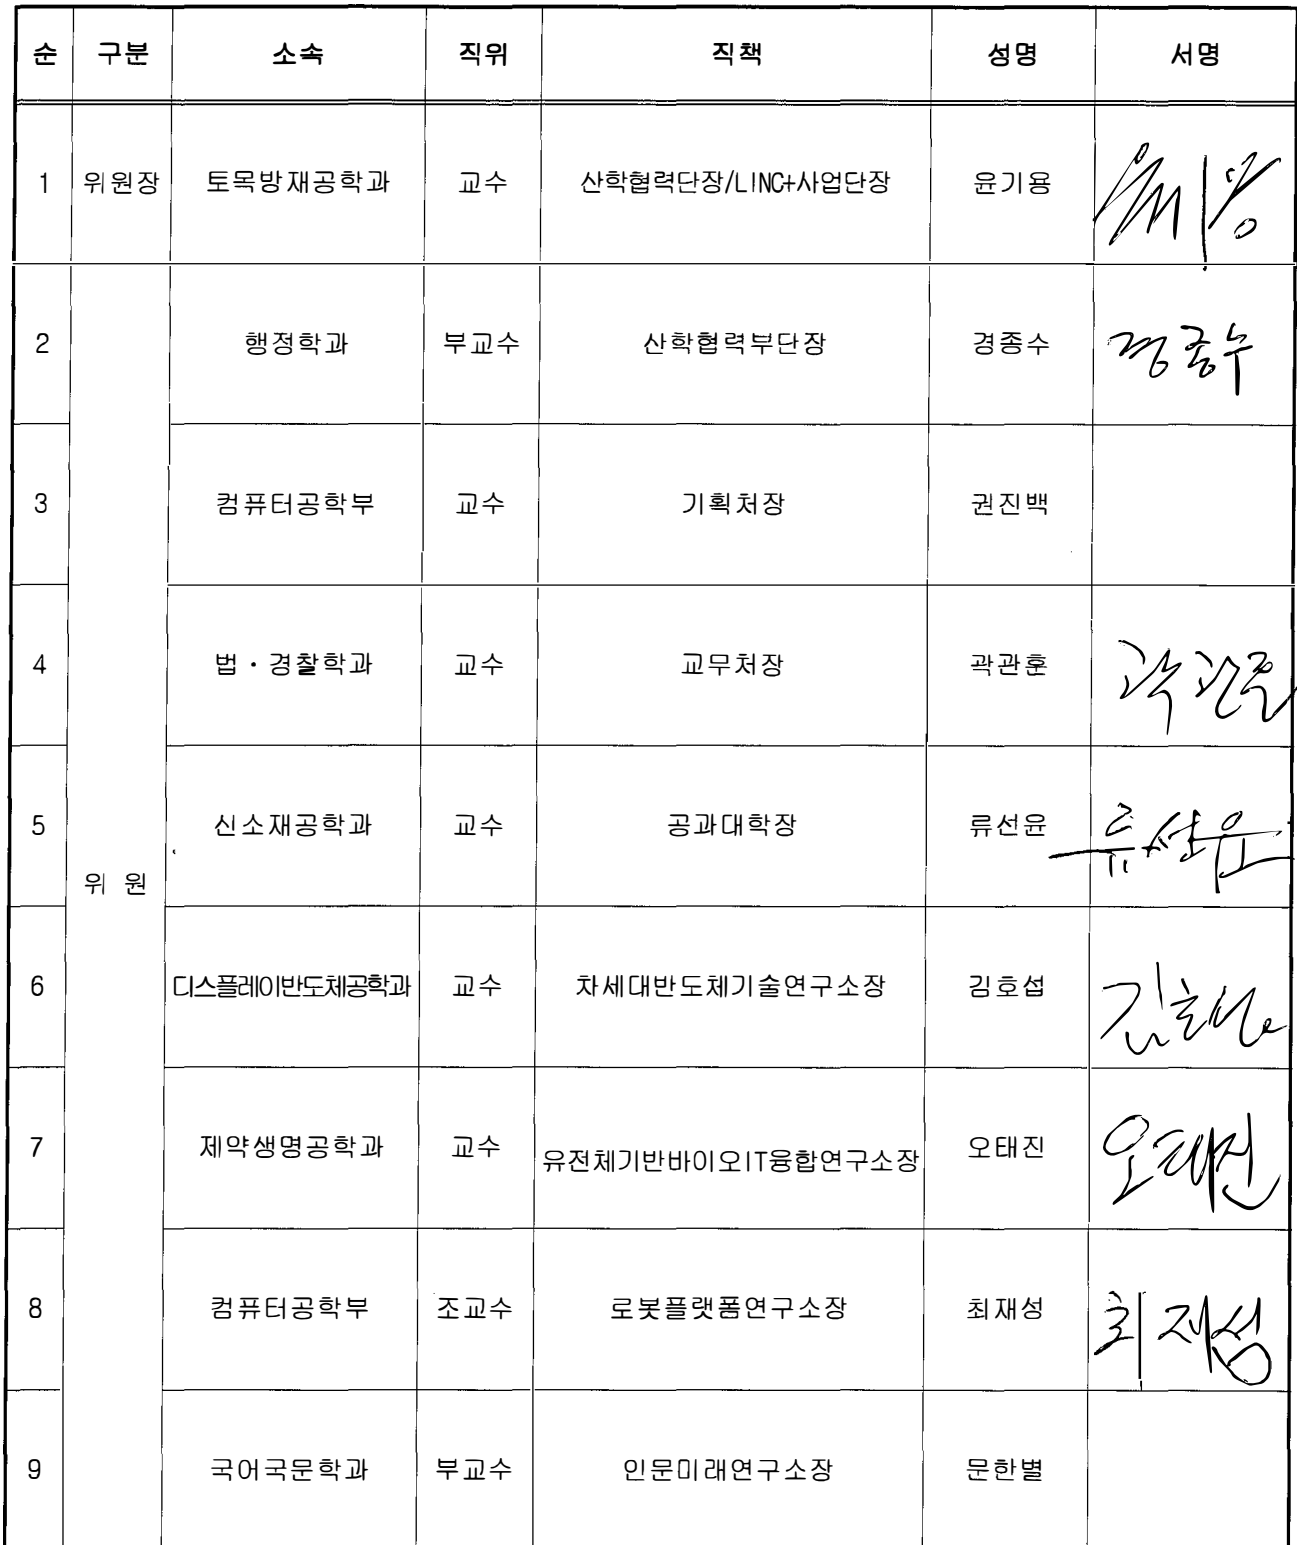 순 구분 소속 직위 직책 성명 서명
1 위원장 토목방재공학과 교수 산학협력단장/LINC+사업단장 윤기용
2 행정학과 부교수 산학협력부단장 경종수 경종수
3 컴퓨터공학부 교수 기획처장 권진백
4 법·경찰학과 교수 교무처장 곽관훈 곽관훈
5 신소재공학과 교수 공과대학장 류선윤 류선윤
위 원
6 디스플레이반도체공학과 교수 차세대반도체기술연구소장 김호섭 김호섭
7 제약생명공학과 교수 유전체기반바이오IT융합연구소장 오태진 오태진
8 컴퓨터공학부 조교수 로봇플랫폼연구소장 최재성 최재성
9 국어국문학과 부교수 인문미래연구소장 문한별